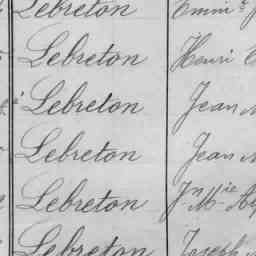 Lebreton Emm
Lebreton Henri
Lebreton Jean
Lebreton Jean
Lebreton Jn Mie
Lebreton Joseph